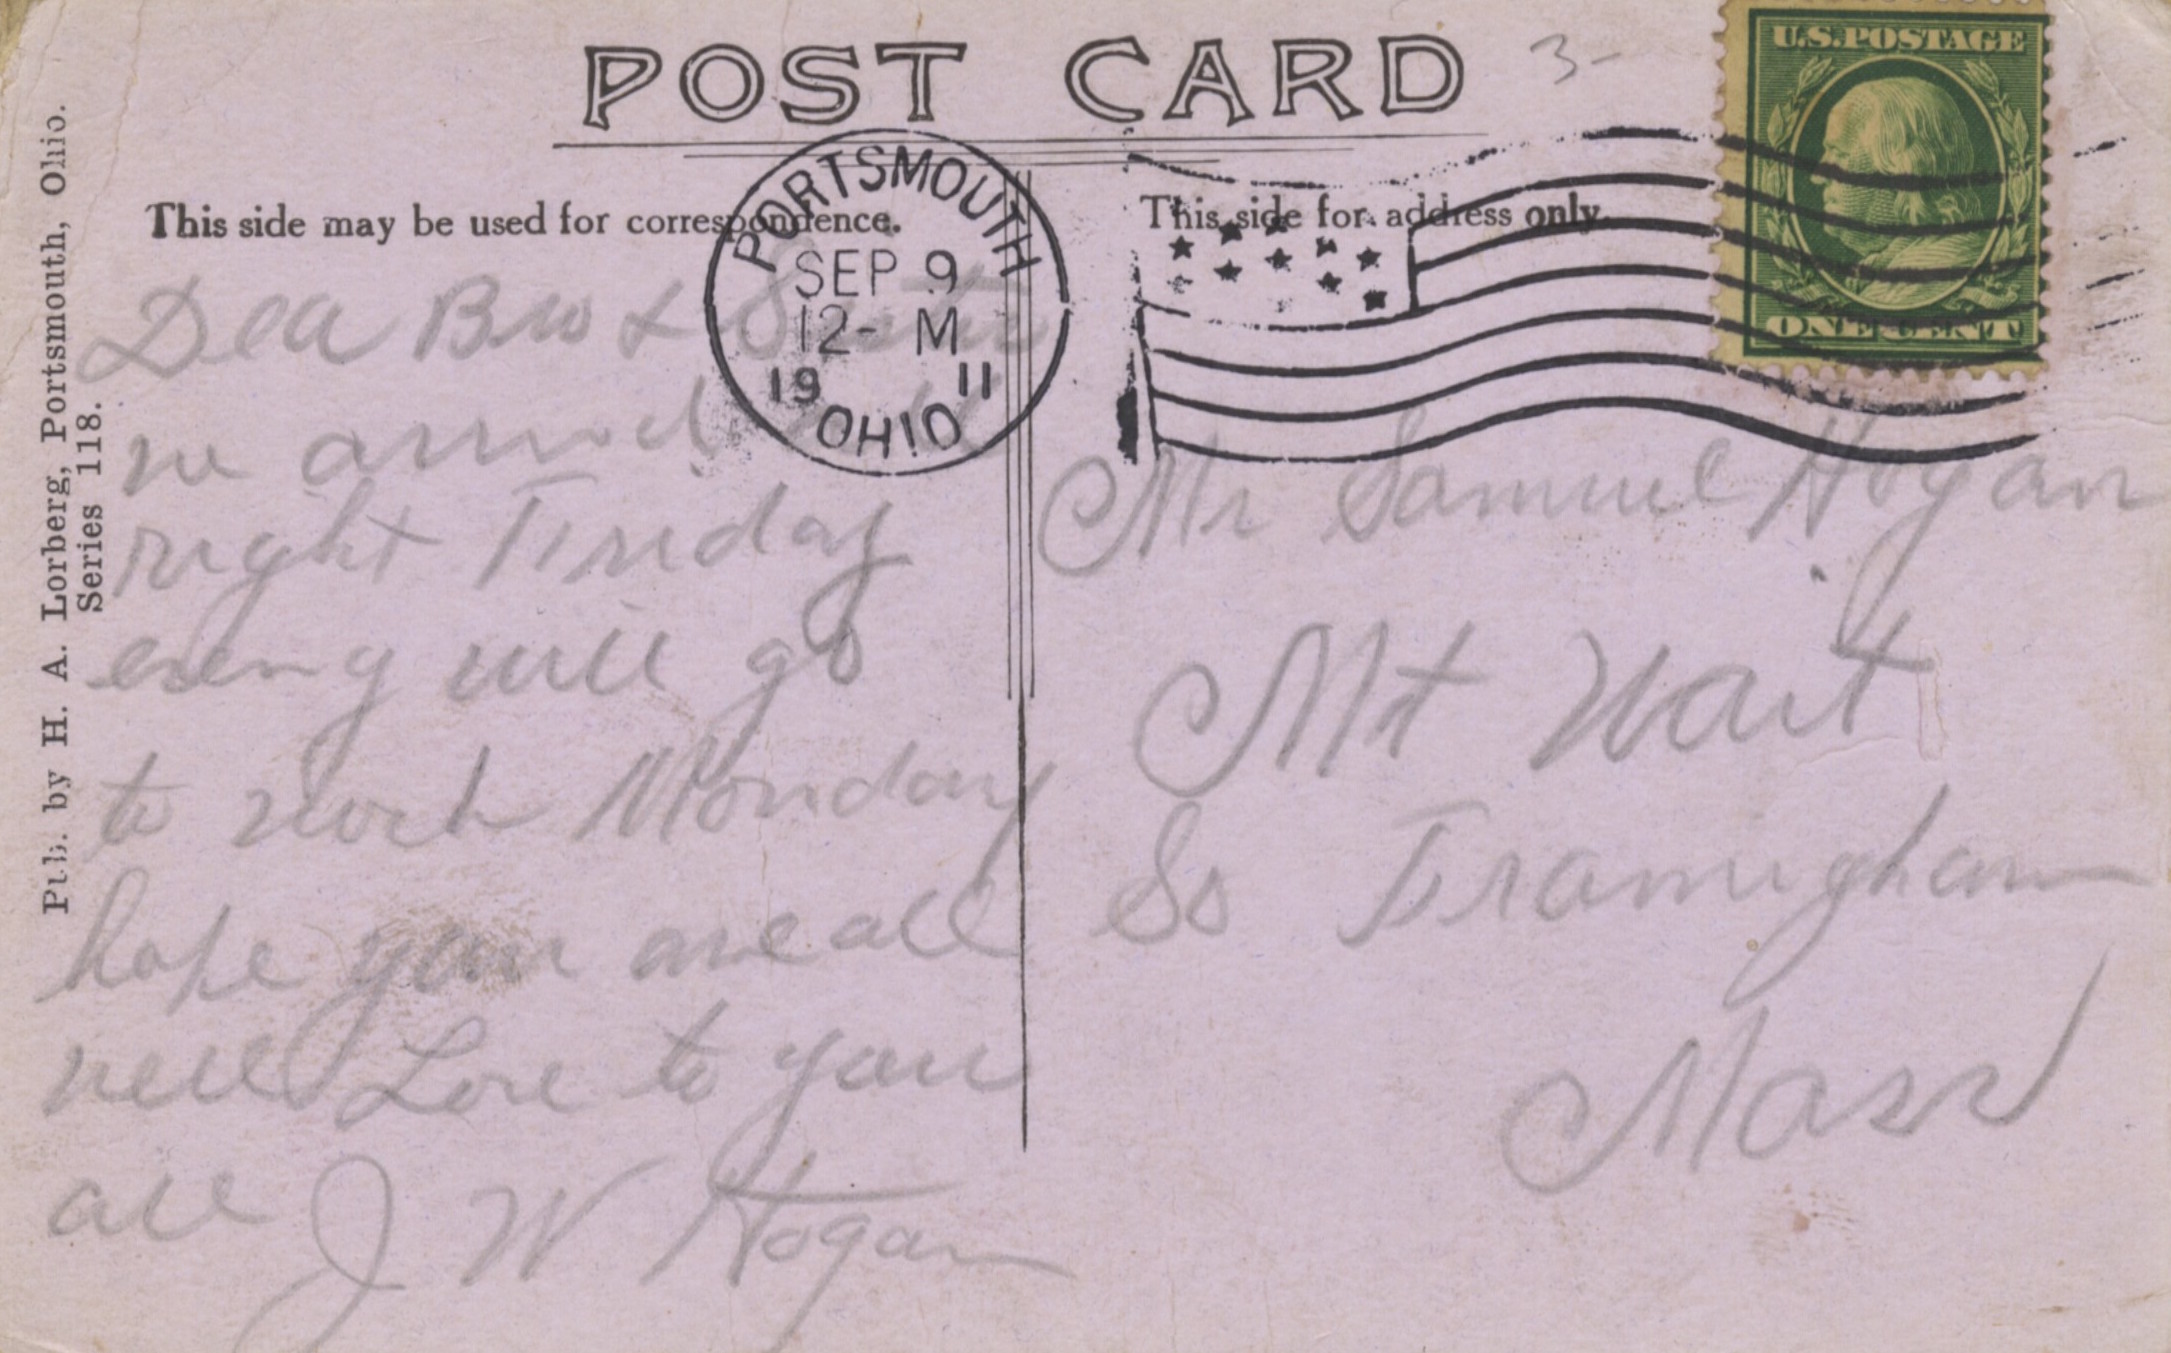 POST CARD
3-
U.S. POSTAGE
ONE CENT
This side may be used for correspondence.
This side for address only.
PORTSMOUTH
SEP 9
12- M
19 11
OHIO
Pub. by H. A. Lorberg, Portsmouth, Ohio.
Series 118.
Dea Bro & Sister
we arrived all
right Friday
eveng will go
to work Monday
hope you are all
well Love to you
all J W Hogan
Mr Samuel Hogan
Mt Wait
So Framigham
Mass